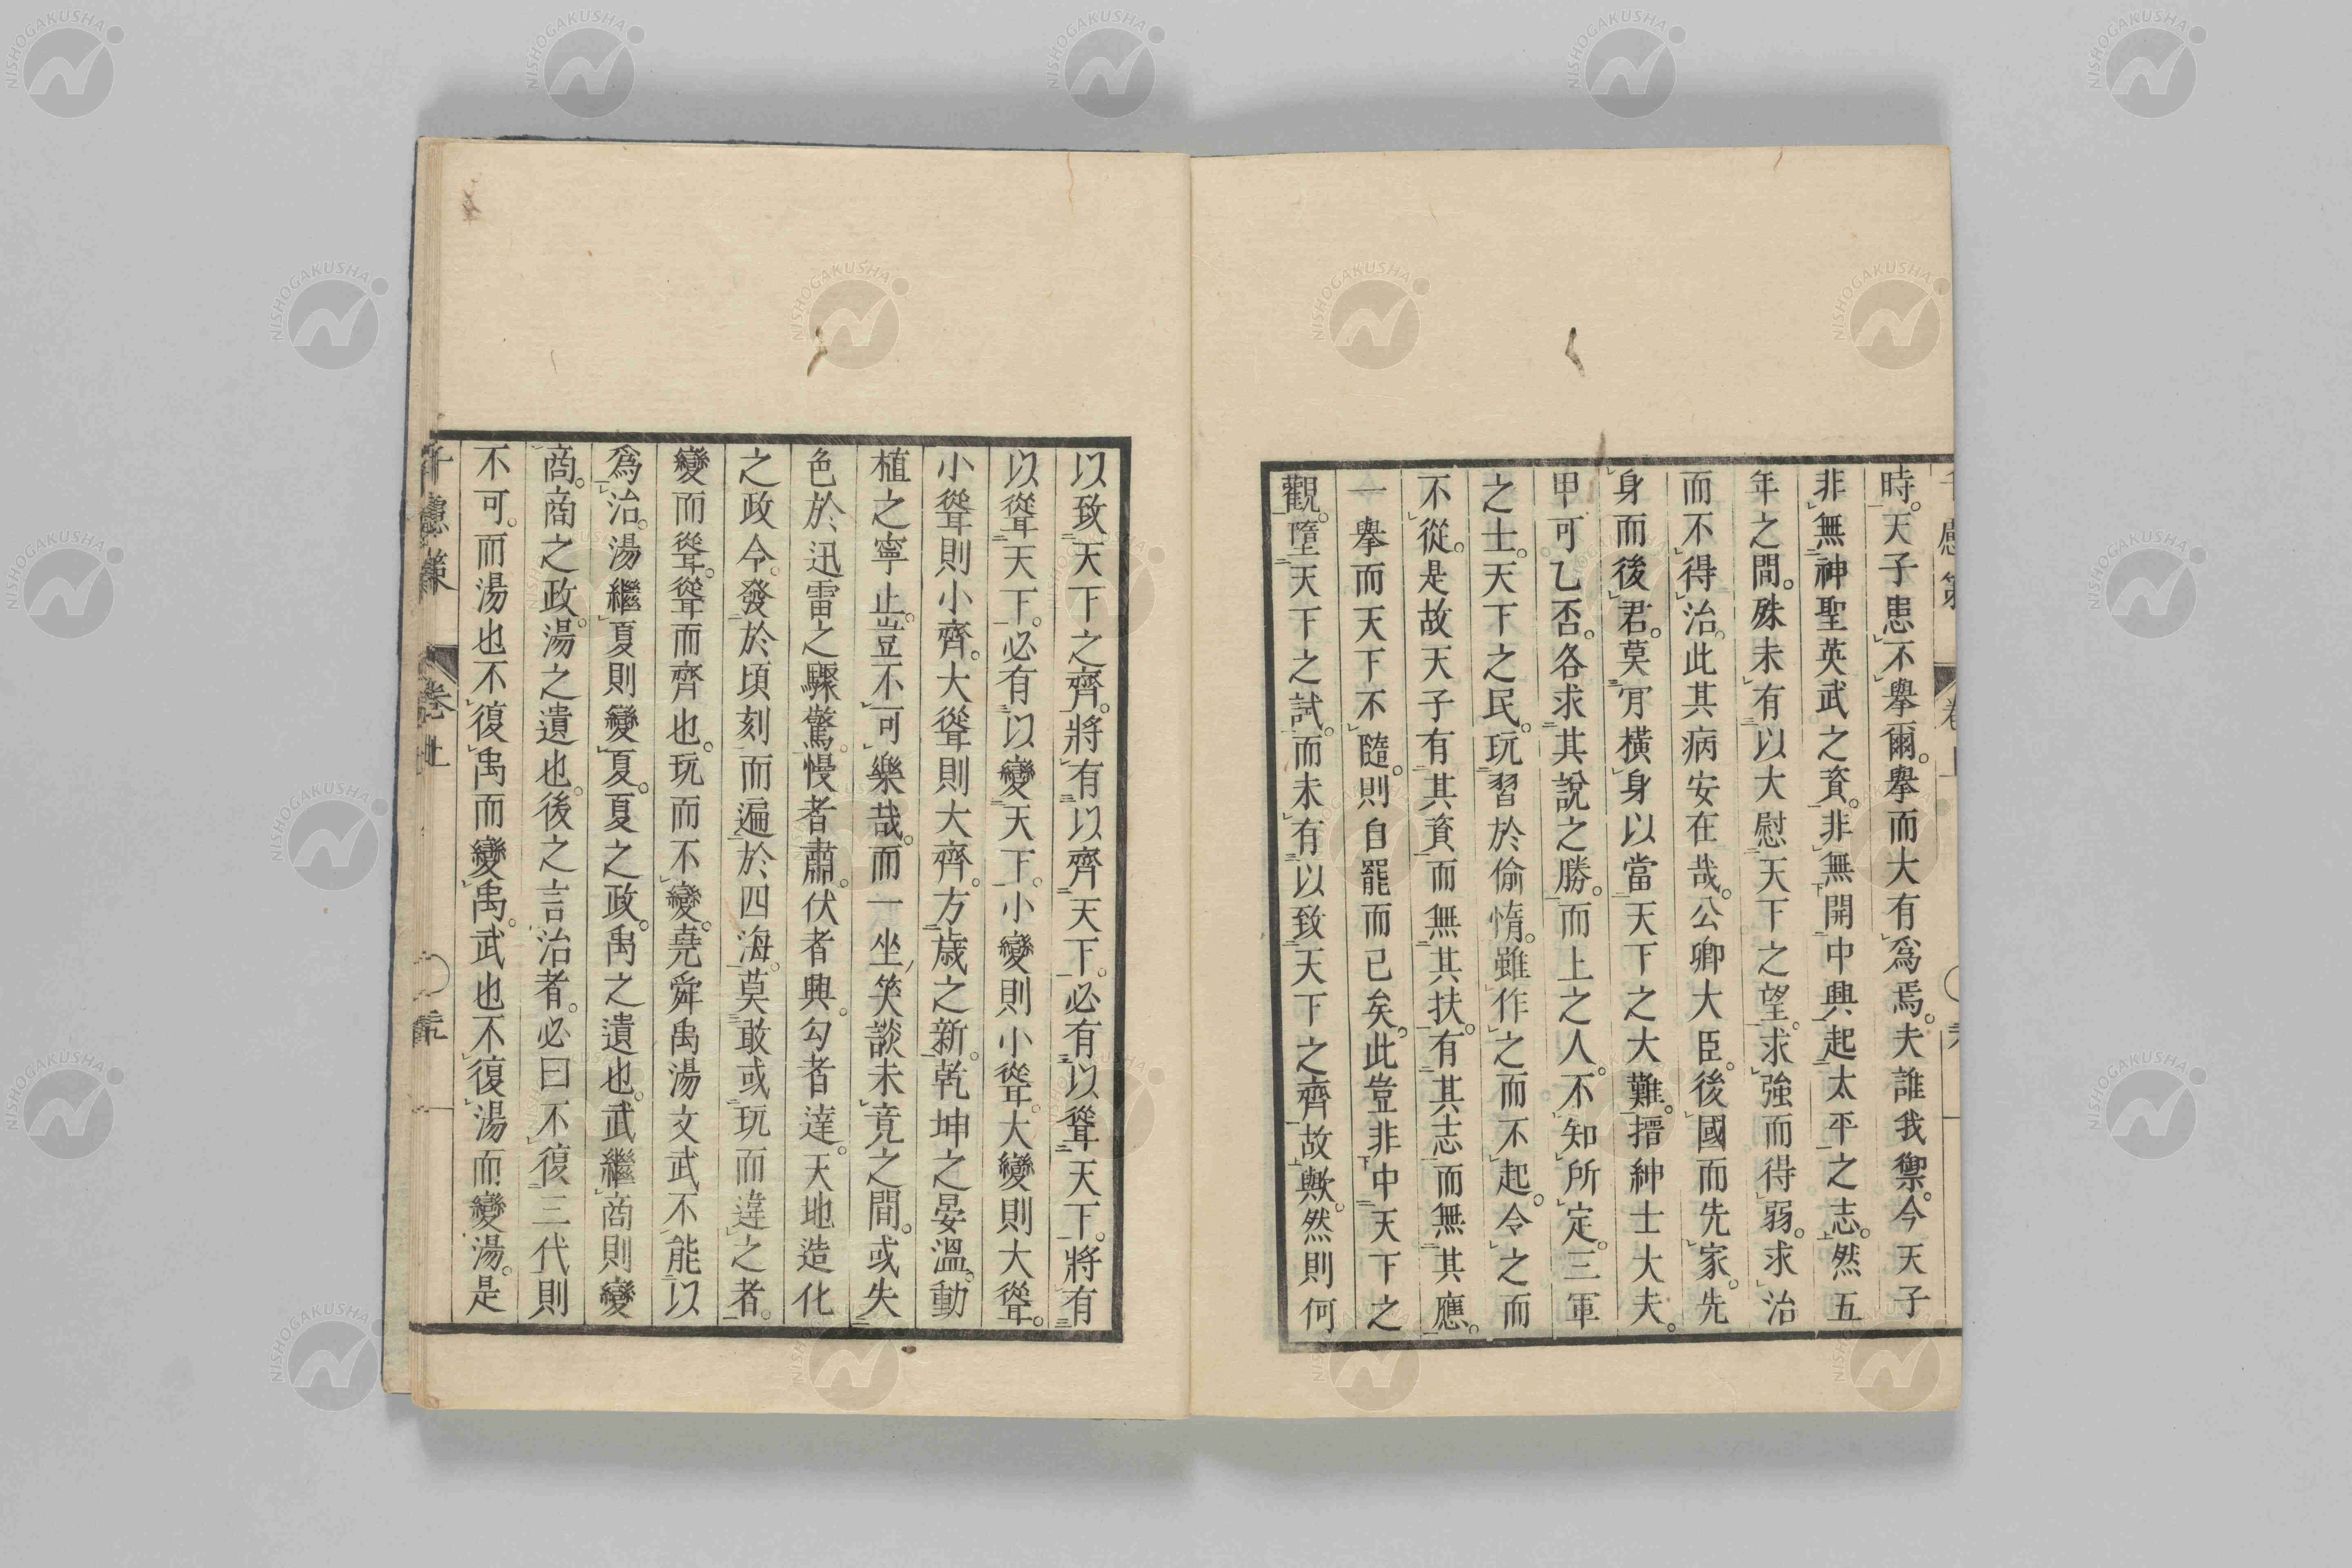 時。天子患不擧爾。擧而大有爲焉。夫誰我禦。今天子
非無神聖英武之資。非無開中興起太平之志。然五
年之間。殊未有以大慰天下之望。求強而得弱。求治
而不得治。此其病安在哉。公卿大臣。後國而先家。先
身而後君。莫肎橫身以當天下之大難。搢紳士大夫。
甲可乙否。各求其說之勝。而上之人。不知所定。三軍
之士。天下之民。玩習於偷惰。雖作之而不起。令之而
不從。是故天子有其資而無其扶。有其志而無其應。
一擧而天下不隨。則自罷而已矣。此豈非中天下之
觀。墮天下之試。而未有以致天下之齊故歟。然則何
以致天下之齊。將有以齊天下。必有以聳天下。將有
以聳天下。必有以變天下。小變則小聳。大變則大聳。
小聳則小齊。大聳則大齊。方歲之新。乾坤之晏溫。動
植之寧止。豈不可樂哉。而一坐笑談未竟之間。或失
色於迅雷之驟驚。慢者肅。伏者興。勾者達。天地造化
之政令。發於頃刻而遍於四海。莫敢或玩而違之者。
變而聳。聳而齊也。玩而不變。堯舜禹湯文武不能以
爲治。湯繼夏則變夏。夏之政。禹之遺也。武繼商則變
商。商之政。湯之遺也。後之言治者。必曰不復三代則
不可。而湯也不復禹而變禹。武也不復湯而變湯。是
千慮策 卷上